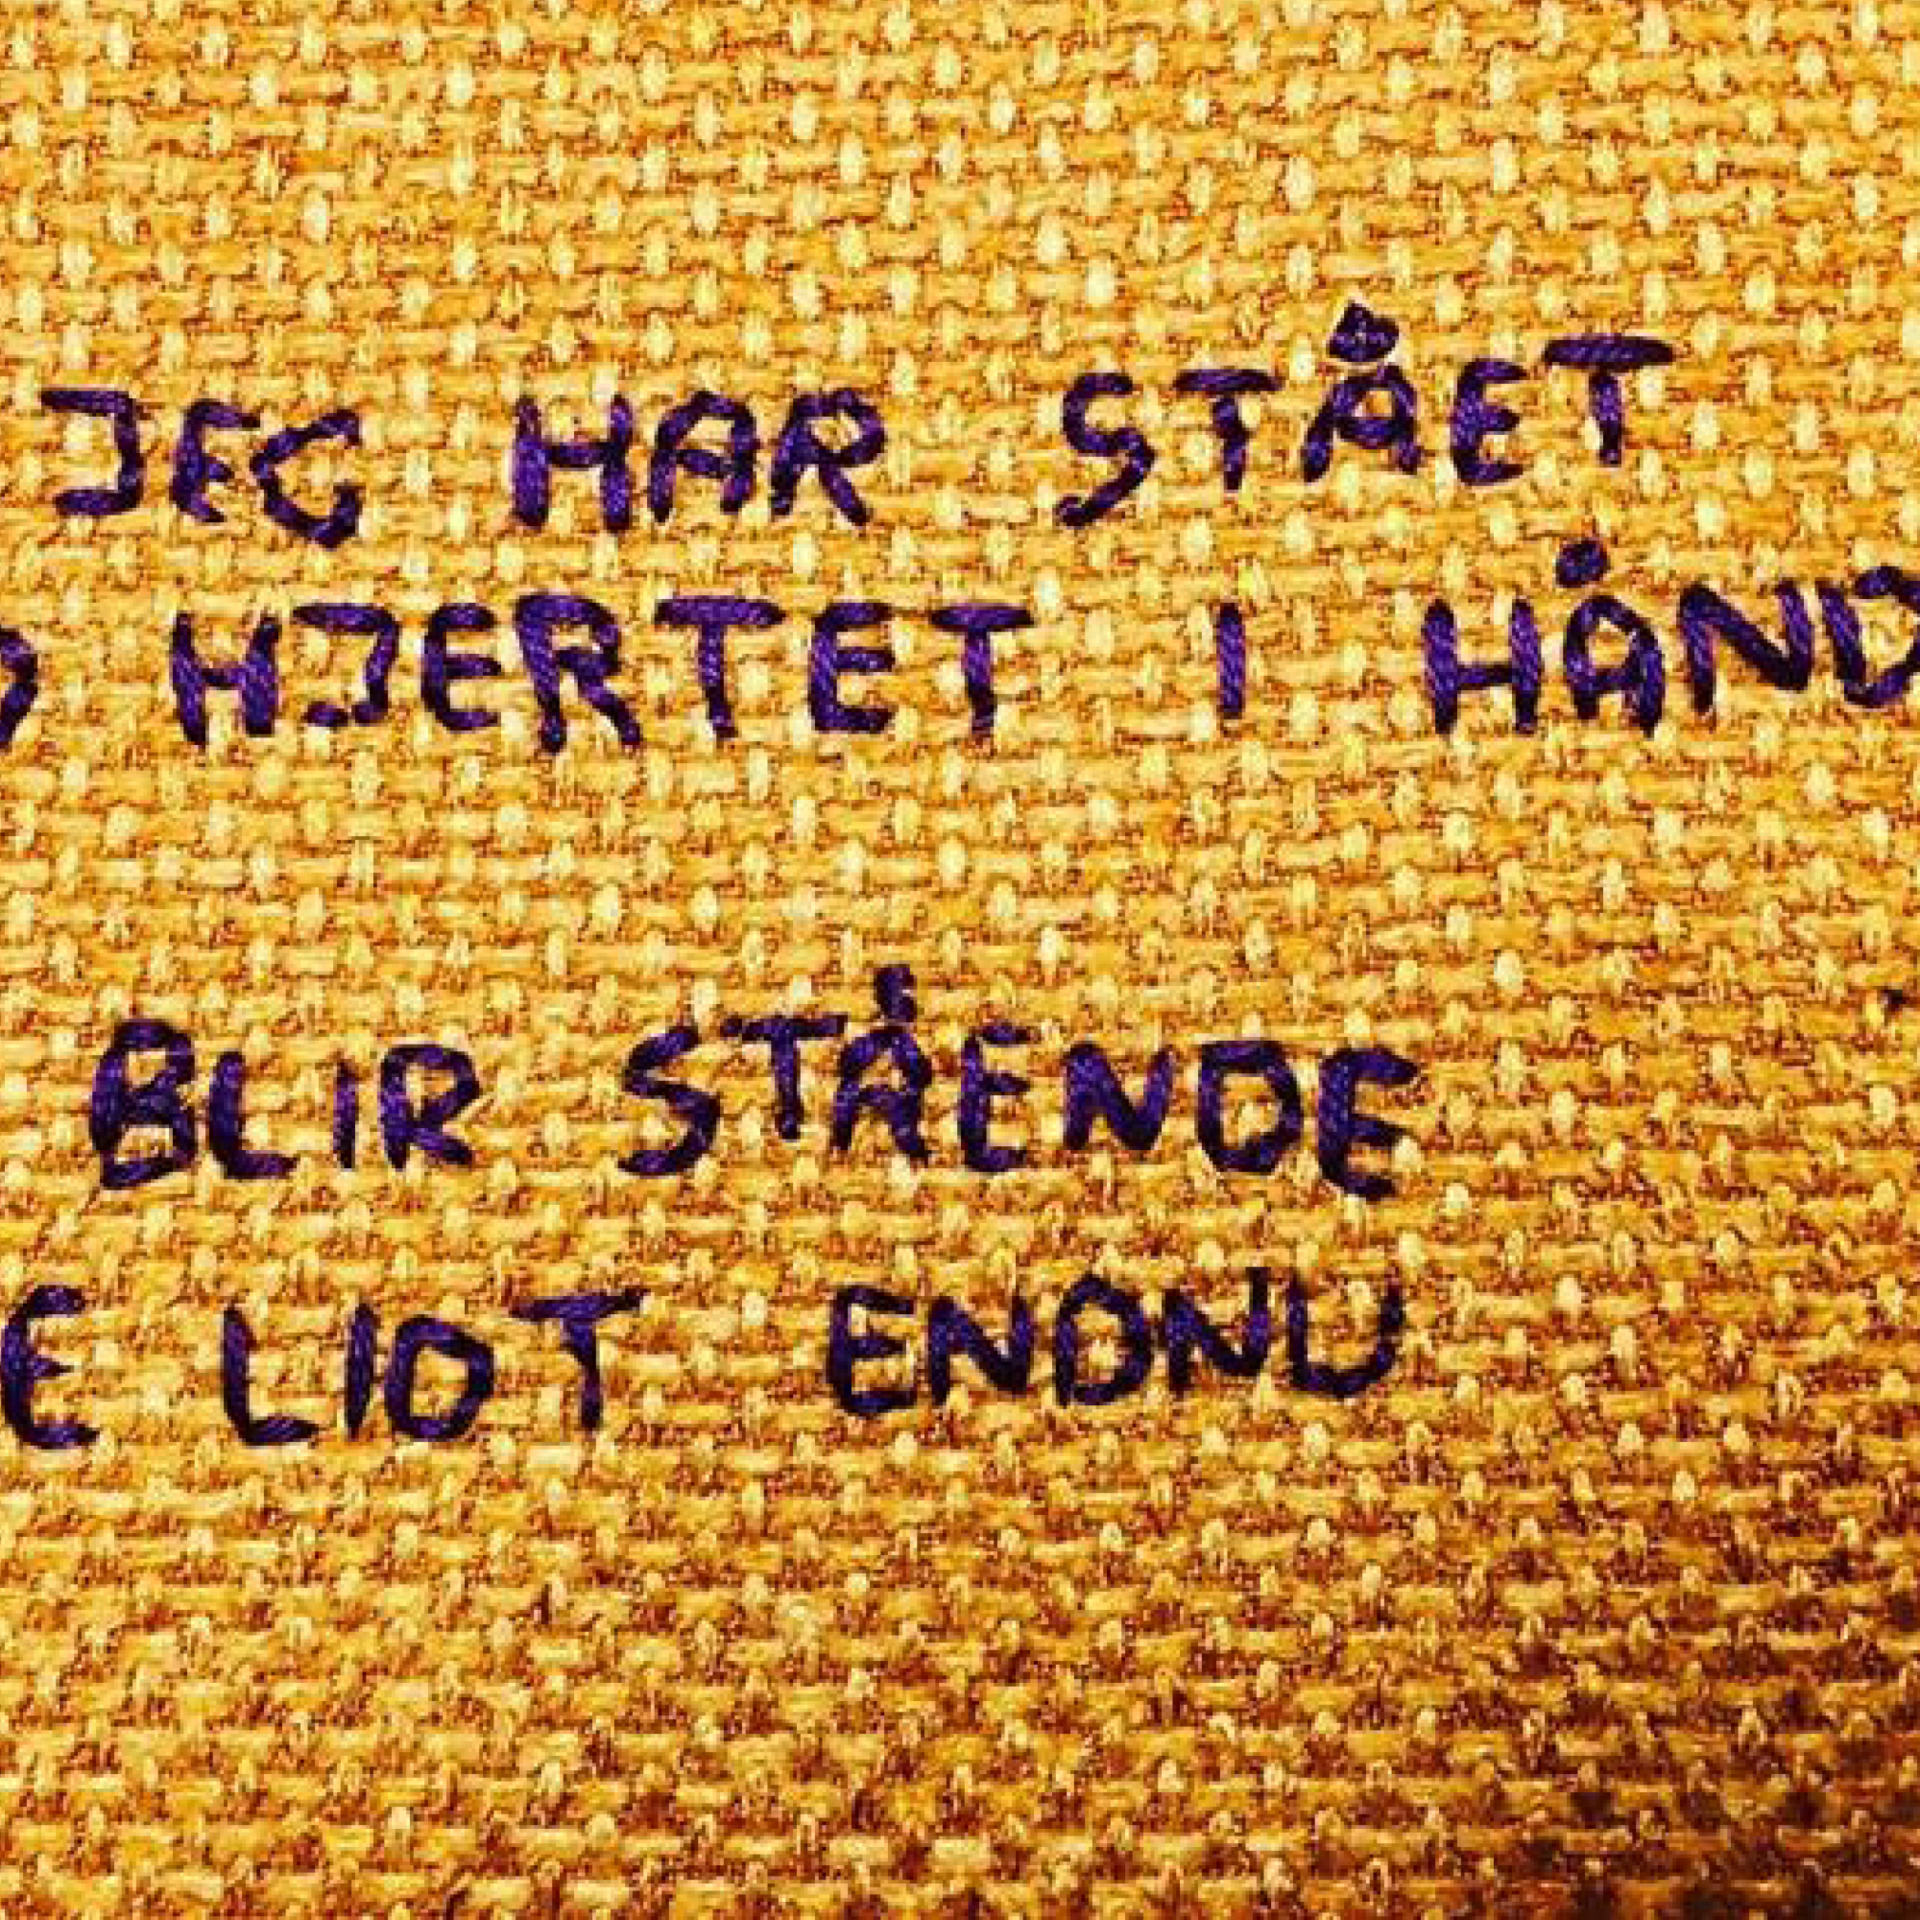 JEG HAR STÅET
HJERTET I HÅND
BLIR STÅENDE
LIDT ENDNU